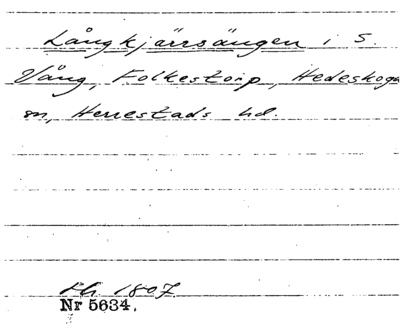 Långkjärrsängen i S.
Vång, Folkestorp, Hedeskoga
sn, Herrestads hd.
Lh 1807.
Nr 5634.